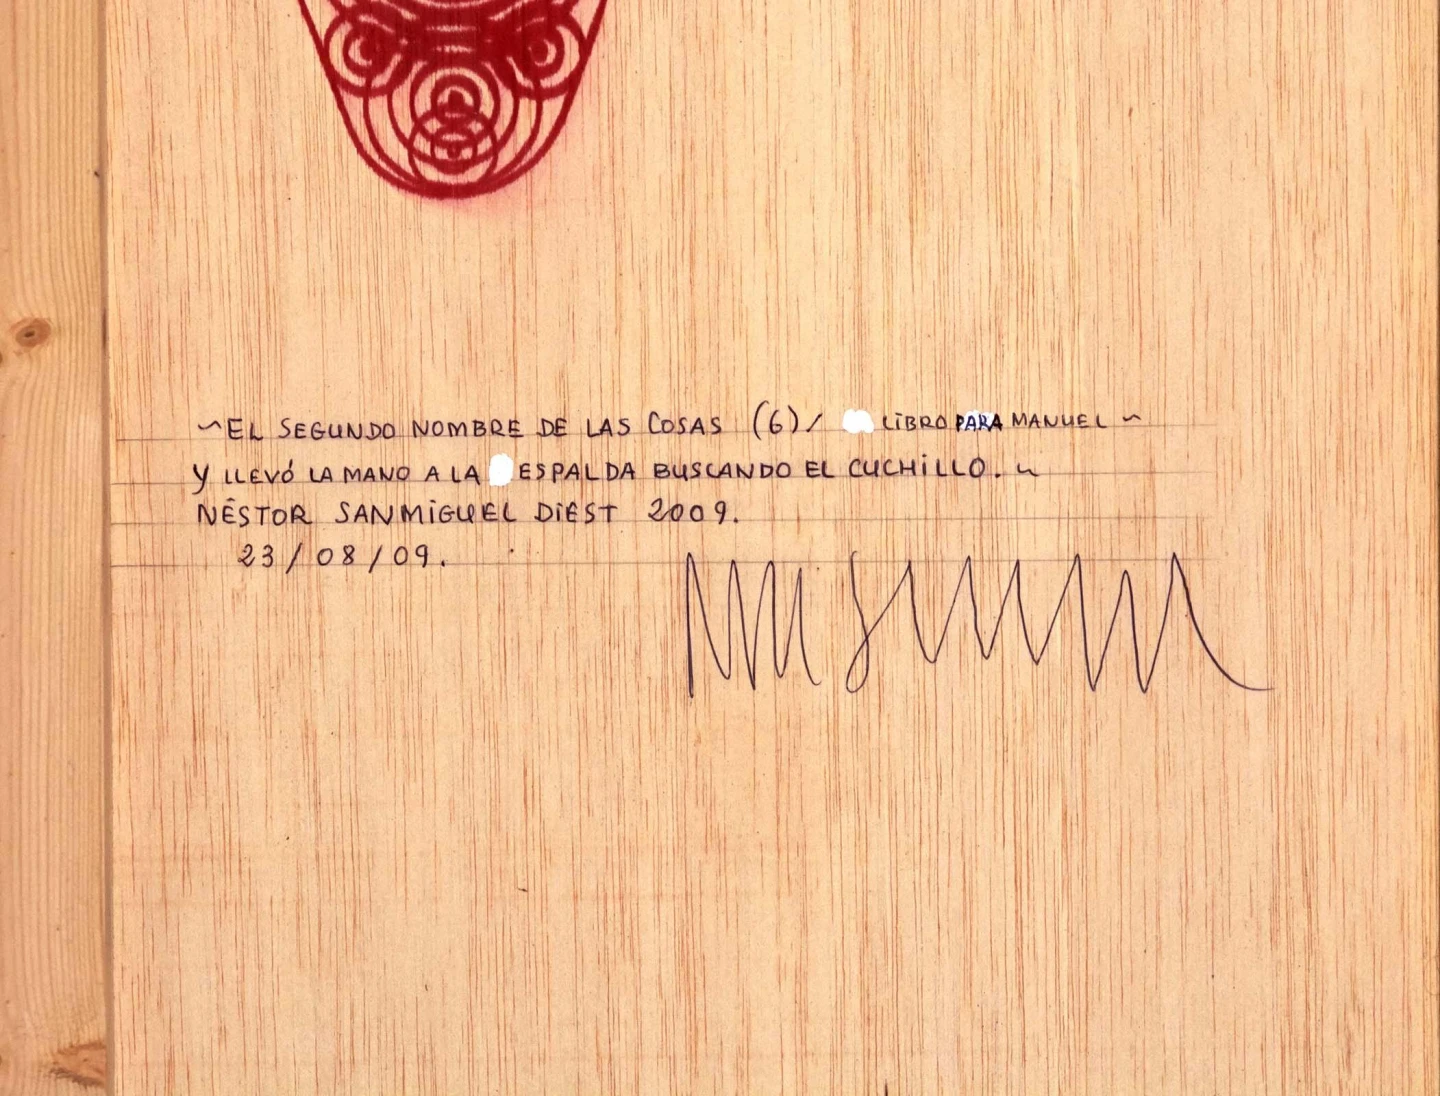 ~EL SEGUNDO NOMBRE DE LAS COSAS (6)/ LIBRO PARA MANUEL~
Y LLEVÓ LA MANO A LA ESPALDA BUSCANDO EL CUCHILLO.~
NÉSTOR SANMIGUEL DIEST 2009.
23/08/09.